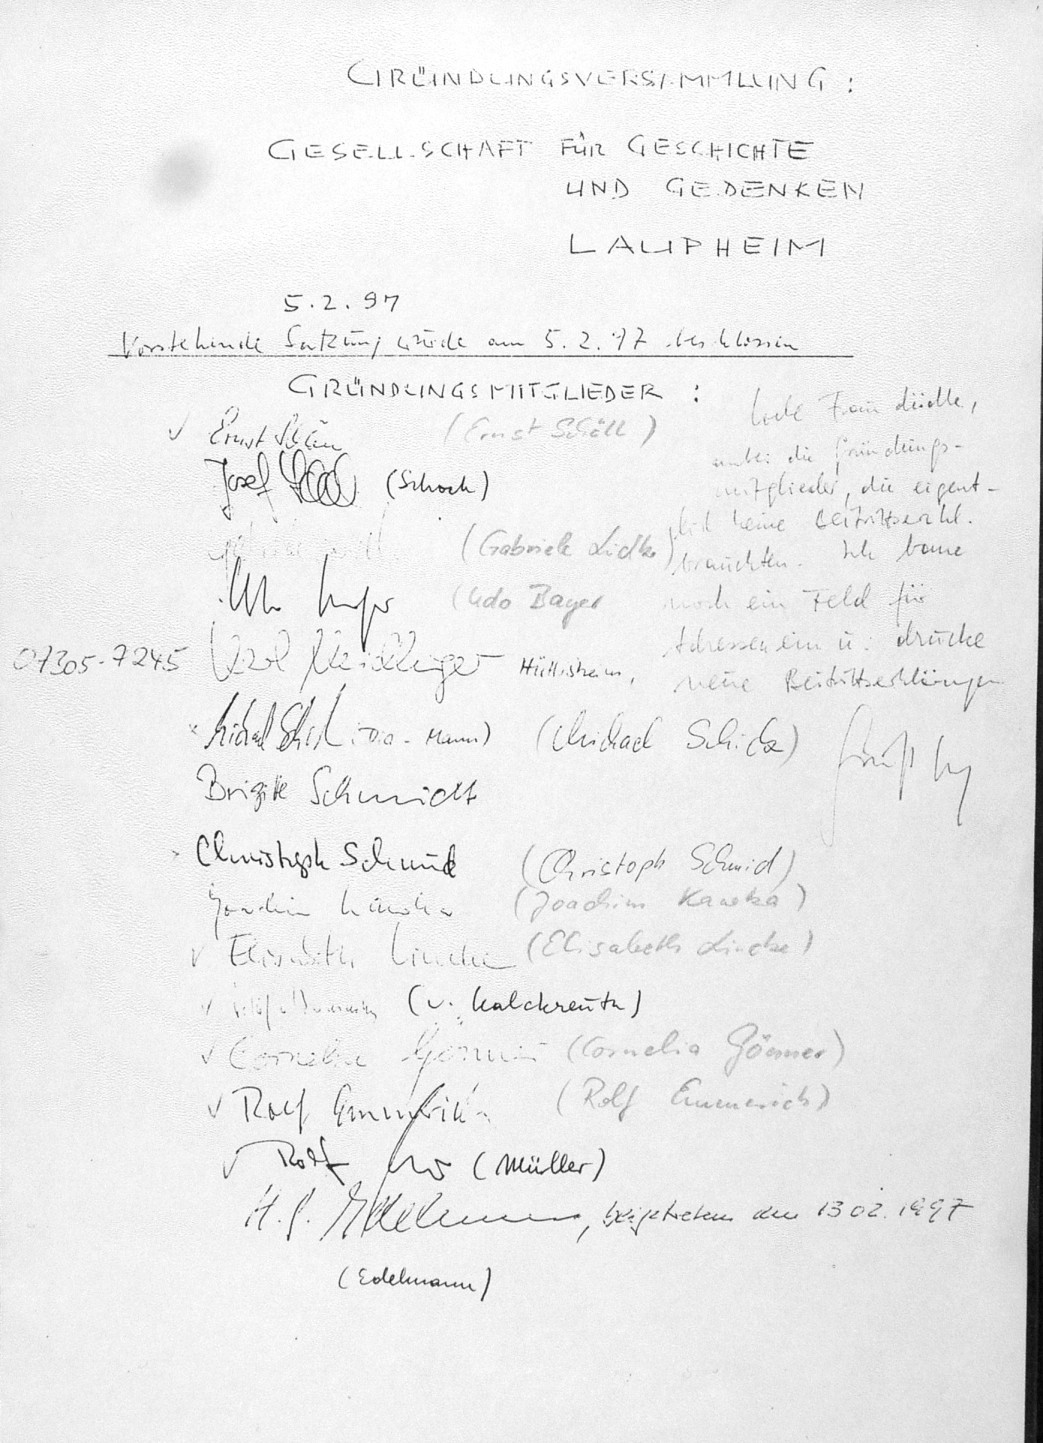 GRÜNDUNGSVERSAMMLUNG :
GESELLSCHAFT FÜR GESCHICHTE
UND GEDENKEN
LAUPHEIM
5.2.97
Vorstehende Satzung wurde am 5.2.97 beschlossen
GRÜNDUNGSMITGLIEDER :
Ernst Schäll (Ernst Schäll)
Josef (Schoch)
(Gabriele Lidke)
Udo Bayer (Udo Bayer
07305-7245 Karl Hüttisheim,
Michael Schick (Dia-Mann) (Michael Schick)
Brigitte Schmidt
Christoph Schmid (Christoph Schmid)
Joachim (Joachim Kanetka)
✓ Elisabeth Lincke (Elisabeth Lincke)
✓ (v. Kalckreuth)
✓ Cornelia Görner (Cornelia Görner)
✓ Rolf Emmerich (Rolf Emmerich)
✓ Rolf (Müller)
H. J. Edelmann, beigetreten am 13 02. 1997
(Edelmann)
Frau
anbei die Gründungs-
mitglieder, die eigent-
lich keine Beitrittserkl.
bräuchten. Ich baue
noch ein Feld für
Adressen ein u. drucke
neue Beitrittserklärungen
Gruß